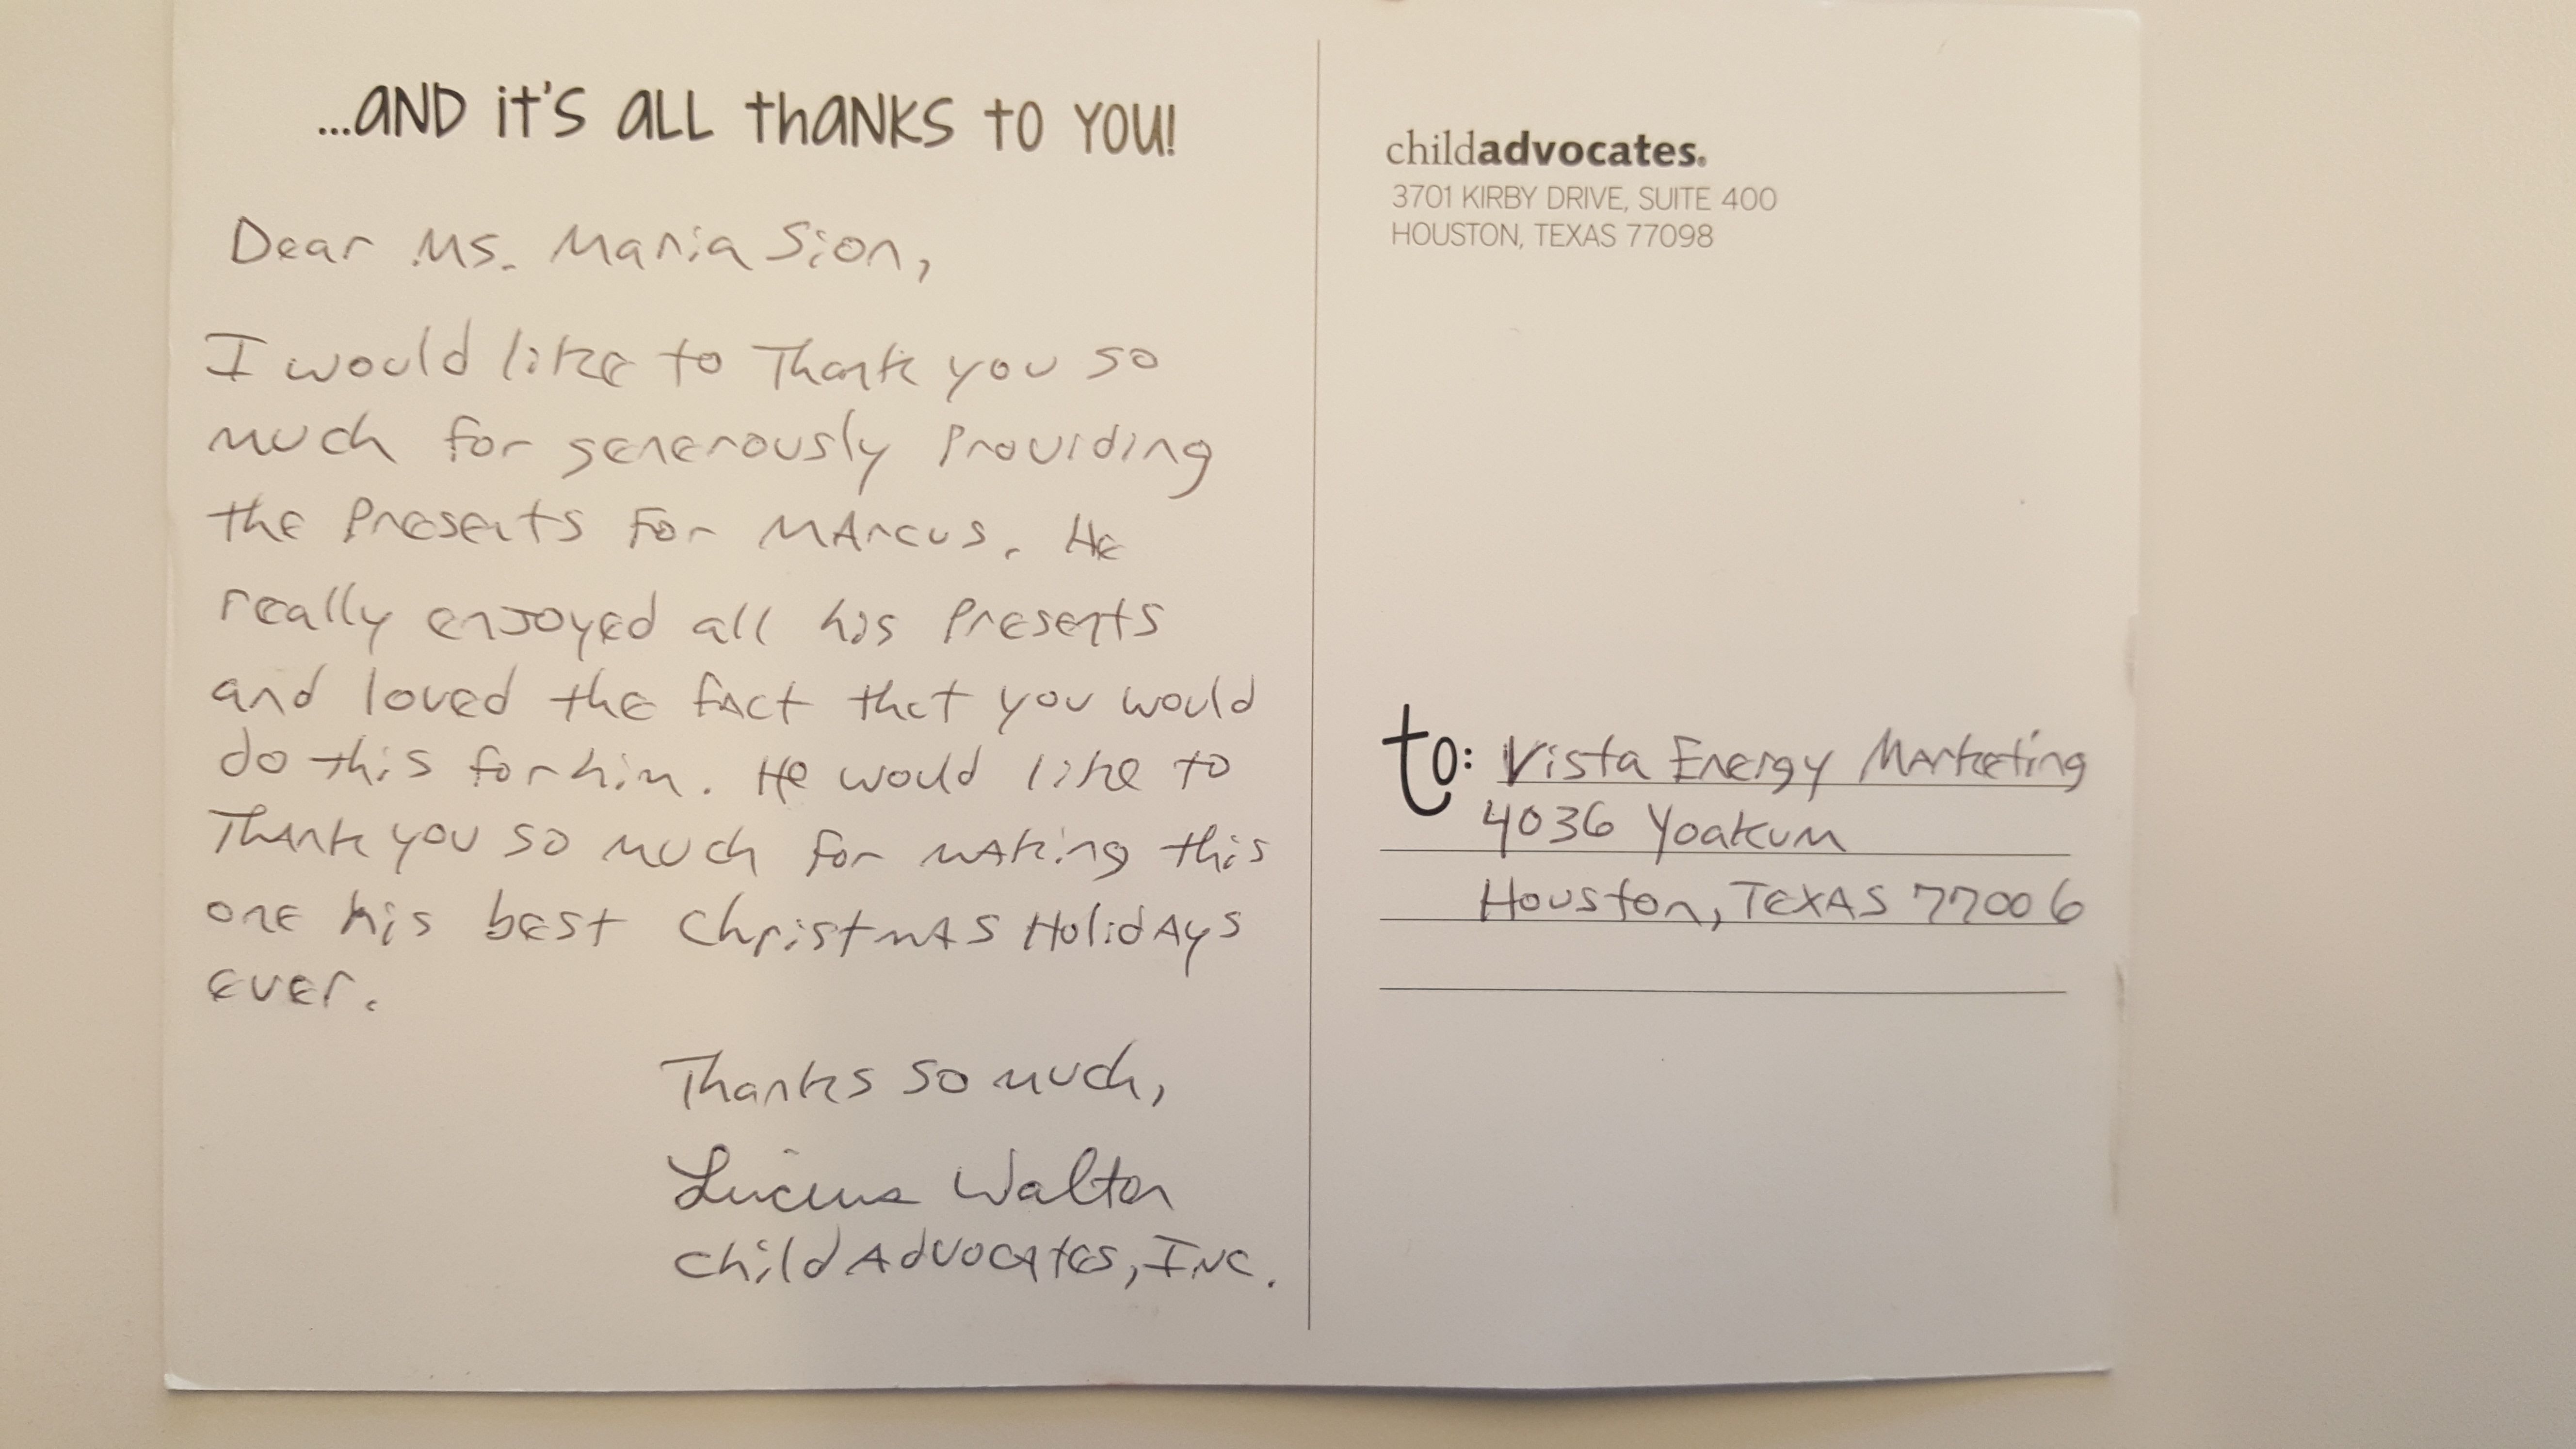 ...AND it's ALL thANKS tO YOU!
Dear Ms. Maria Sion,
I would like to Thank you so
much for generously Providing
the Presents For MArcus. He
really enJoyed all his Presents
and loved the fAct that you would
do this for him. He would like to
ThAnk you so much for mAking this
one his best ChristmAS HolidAys
ever.
Thanks so much,
Lucius Walton
Child AdvocAtes, Inc.
childadvocates®
3701 KIRBY DRIVE, SUITE 400
HOUSTON, TEXAS 77098
to: Vista Energy Marketing
4036 Yoakum
Houston, TEXAS 77006